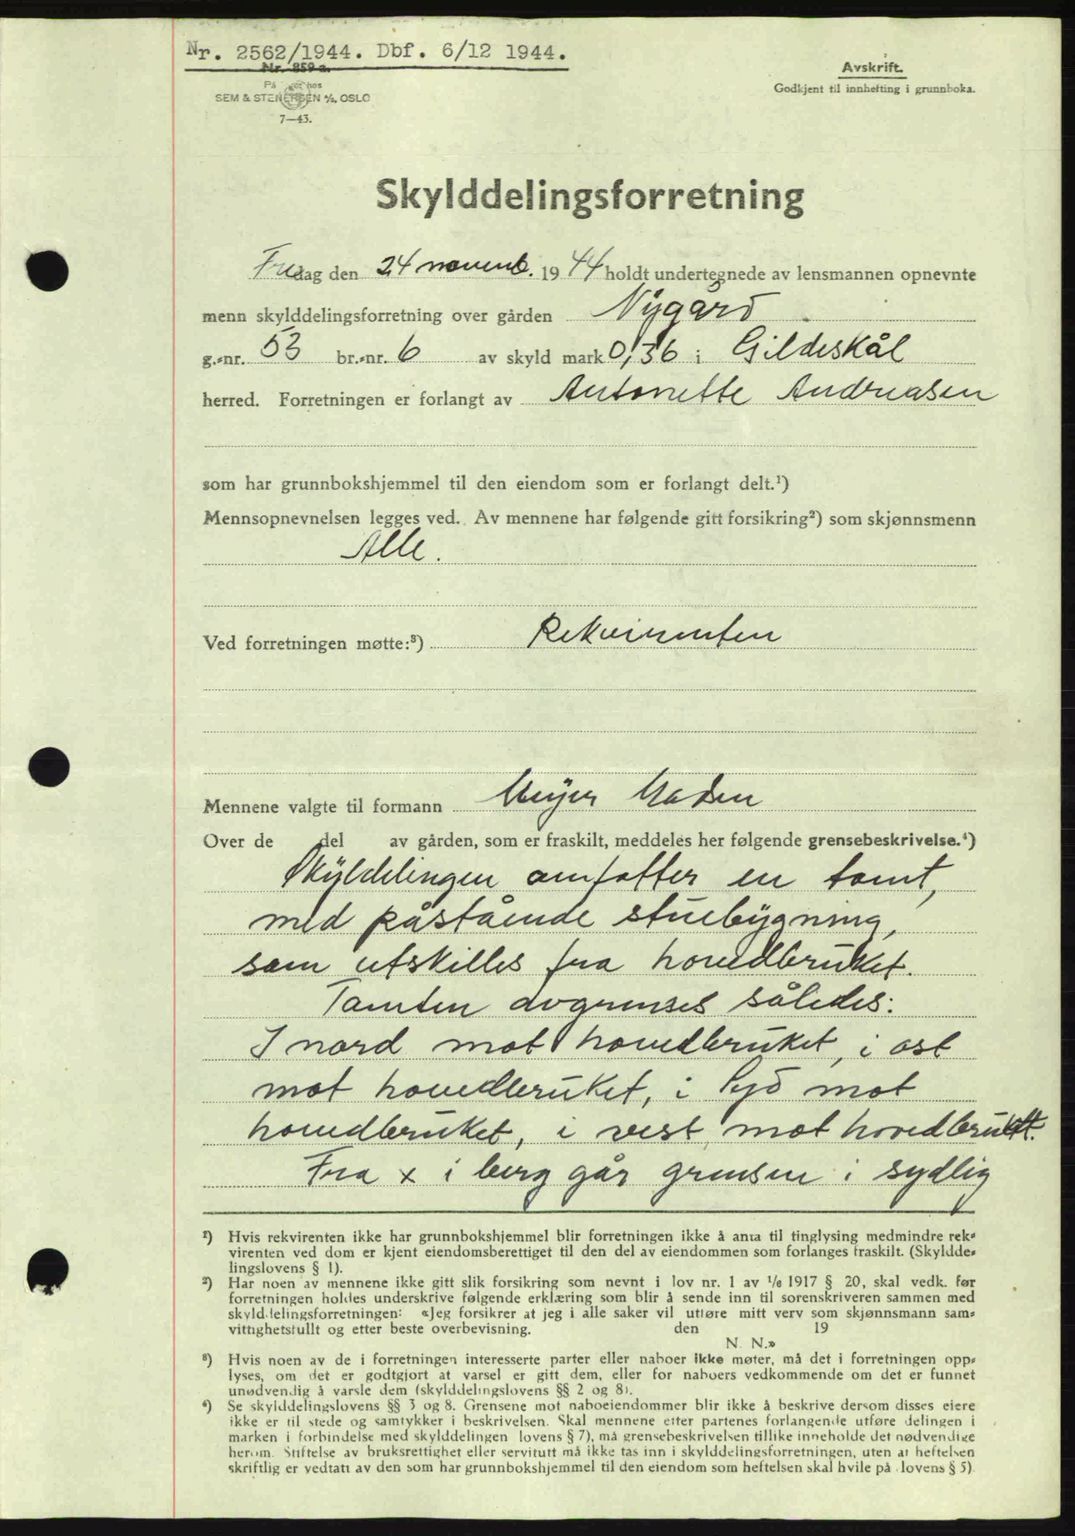 Nr. 2562/1944. Dbf. 6/12 1944.
Nr. 859 a.
På hos
SEM & STENERSEN A/S, OSLO
7—43.
Avskrift.
Godkjent til innhefting i grunnboka.
Skylddelingsforretning
Fredag den 24 novemb. 1944 holdt undertegnede av lensmannen opnevnte
menn skylddelingsforretning over gården Nygård
g.-nr. 53 br.-nr. 6 av skyld mark 0,36 i Gildeskål
herred. Forretningen er forlangt av Antonette Andreasen
som har grunnbokshjemmel til den eiendom som er forlangt delt.¹)
Mennsopnevnelsen legges ved. Av mennene har følgende gitt forsikring²) som skjønnsmenn
Alle.
Ved forretningen møtte:³) Rekvirenten
Mennene valgte til formann Meyer Madsen
Over de del av gården, som er fraskilt, meddeles her følgende grensebeskrivelse.⁴)
Skylddelingen omfatter en tomt,
med påstående stuebygning,
som utskilles fra hovedbruket.
Tomten avgrenses således:
I nord mot hovedbruket, i øst
mot hovedbruket, i syd mot
hovedbruket, i vest mot hovedbruket.
Fra x i berg går grensen i sydlig
¹) Hvis rekvirenten ikke har grunnbokshjemmel blir forretningen ikke å anta til tinglysing medmindre rek-
virenten ved dom er kjent eiendomsberettiget til den del av eiendommen som forlanges fraskilt. (Skyldde-
lingslovens § 1).
²) Har noen av mennene ikke gitt slik forsikring som nevnt i lov nr. 1 av ¹/₆ 1917 § 20, skal vedk. før
forretningen holdes underskrive følgende erklæring som blir å sende inn til sorenskriveren sammen med
skylddelingsforretningen: «Jeg forsikrer at jeg i alle saker vil utføre mitt verv som skjønnsmann sam-
vittighetsfullt og etter beste overbevisning. den 19
N. N.»
³) Hvis noen av de i forretningen interesserte parter eller naboer ikke møter, må det i forretningen opp-
lyses, om det er godtgjort at varsel er gitt dem, eller for naboers vedkommende om det er funnet
unødvendig å varsle dem (skylddelingslovens §§ 2 og 8).
⁴) Se skylddelingslovens §§ 3 og 8. Grensene mot naboeiendommer blir ikke å beskrive dersom disses eiere
ikke er til stede og samtykker i beskrivelsen. Skal mennene etter partenes forlangende utføre delingen i
marken i forbindelse med skylddelingen lovens § 7), må grensebeskrivelsen tillike inneholde det nødvendige
herom. Stiftelse av bruksrettighet eller servitutt må ikke tas inn i skylddelingsforretningen, uten at heftelsen
skriftlig er vedtatt av den som har grunnbokshjemmel til den eiendom som heftelsen skal hvile på lovens § 5)